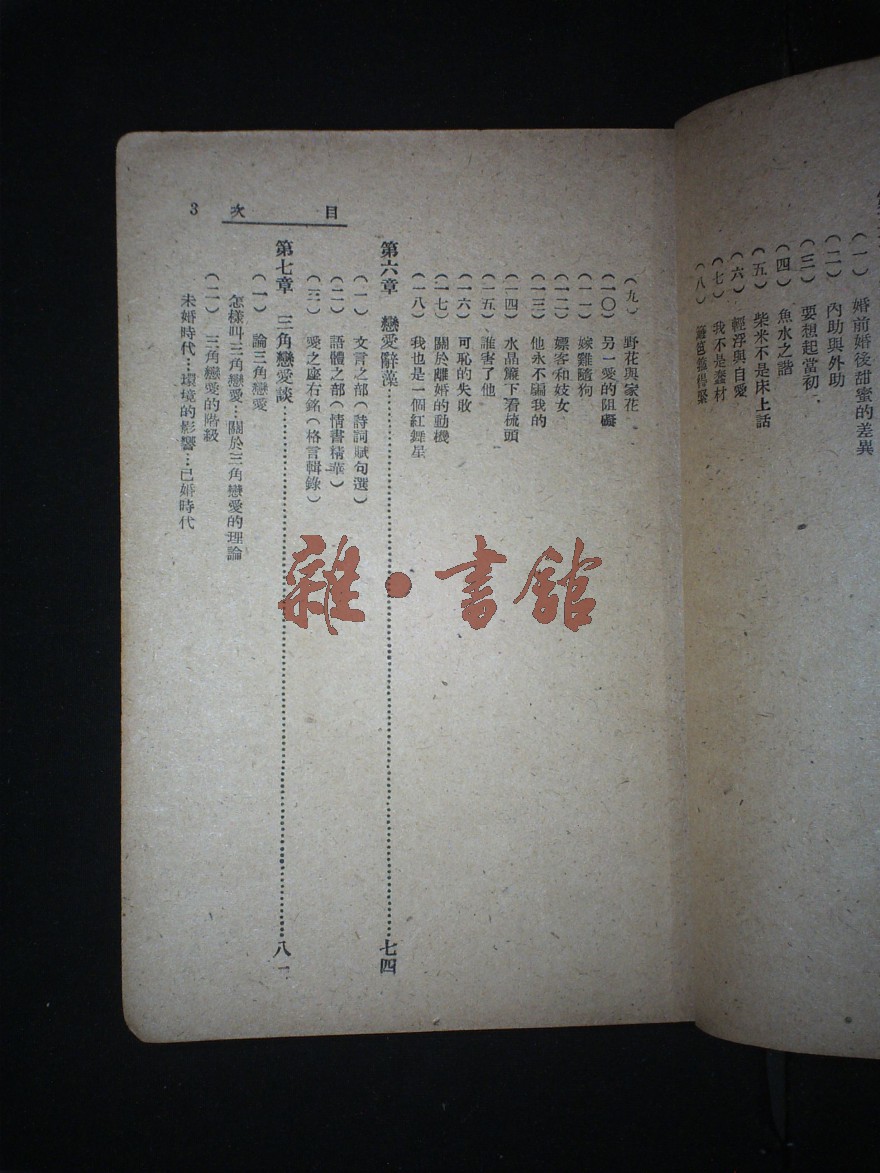 (一) 婚前婚後甜蜜的差異
(二) 內助與外助
(三) 要想起當初
(四) 魚水之諧
(五) 柴米不是床上話
(六) 輕浮與自愛
(七) 我不是蠢材
(八) 籬笆
目次 3
(九) 野花與家花
(一〇) 另一愛的阻礙
(一一) 嫁雞隨狗
(一二) 嫖客和妓女
(一三) 他永不騙我的
(一四) 水晶簾下看梳頭
(一五) 誰害了他
(一六) 可恥的失收
(一七) 關於離婚的動機
(一八) 我也是一個紅舞星
第六章 戀愛辭藻……七四
(一) 文言之部(詩詞賦句選)
(二) 語體之部(情書精華)
(三) 愛之座右銘(格言輯錄)
第七章 三角戀愛談……八一
(一) 論三角戀愛
怎樣叫三角戀愛…關於三角戀愛的理論
(二) 三角戀愛的階級
未婚時代…環境的影響…已婚時代
雜·書館